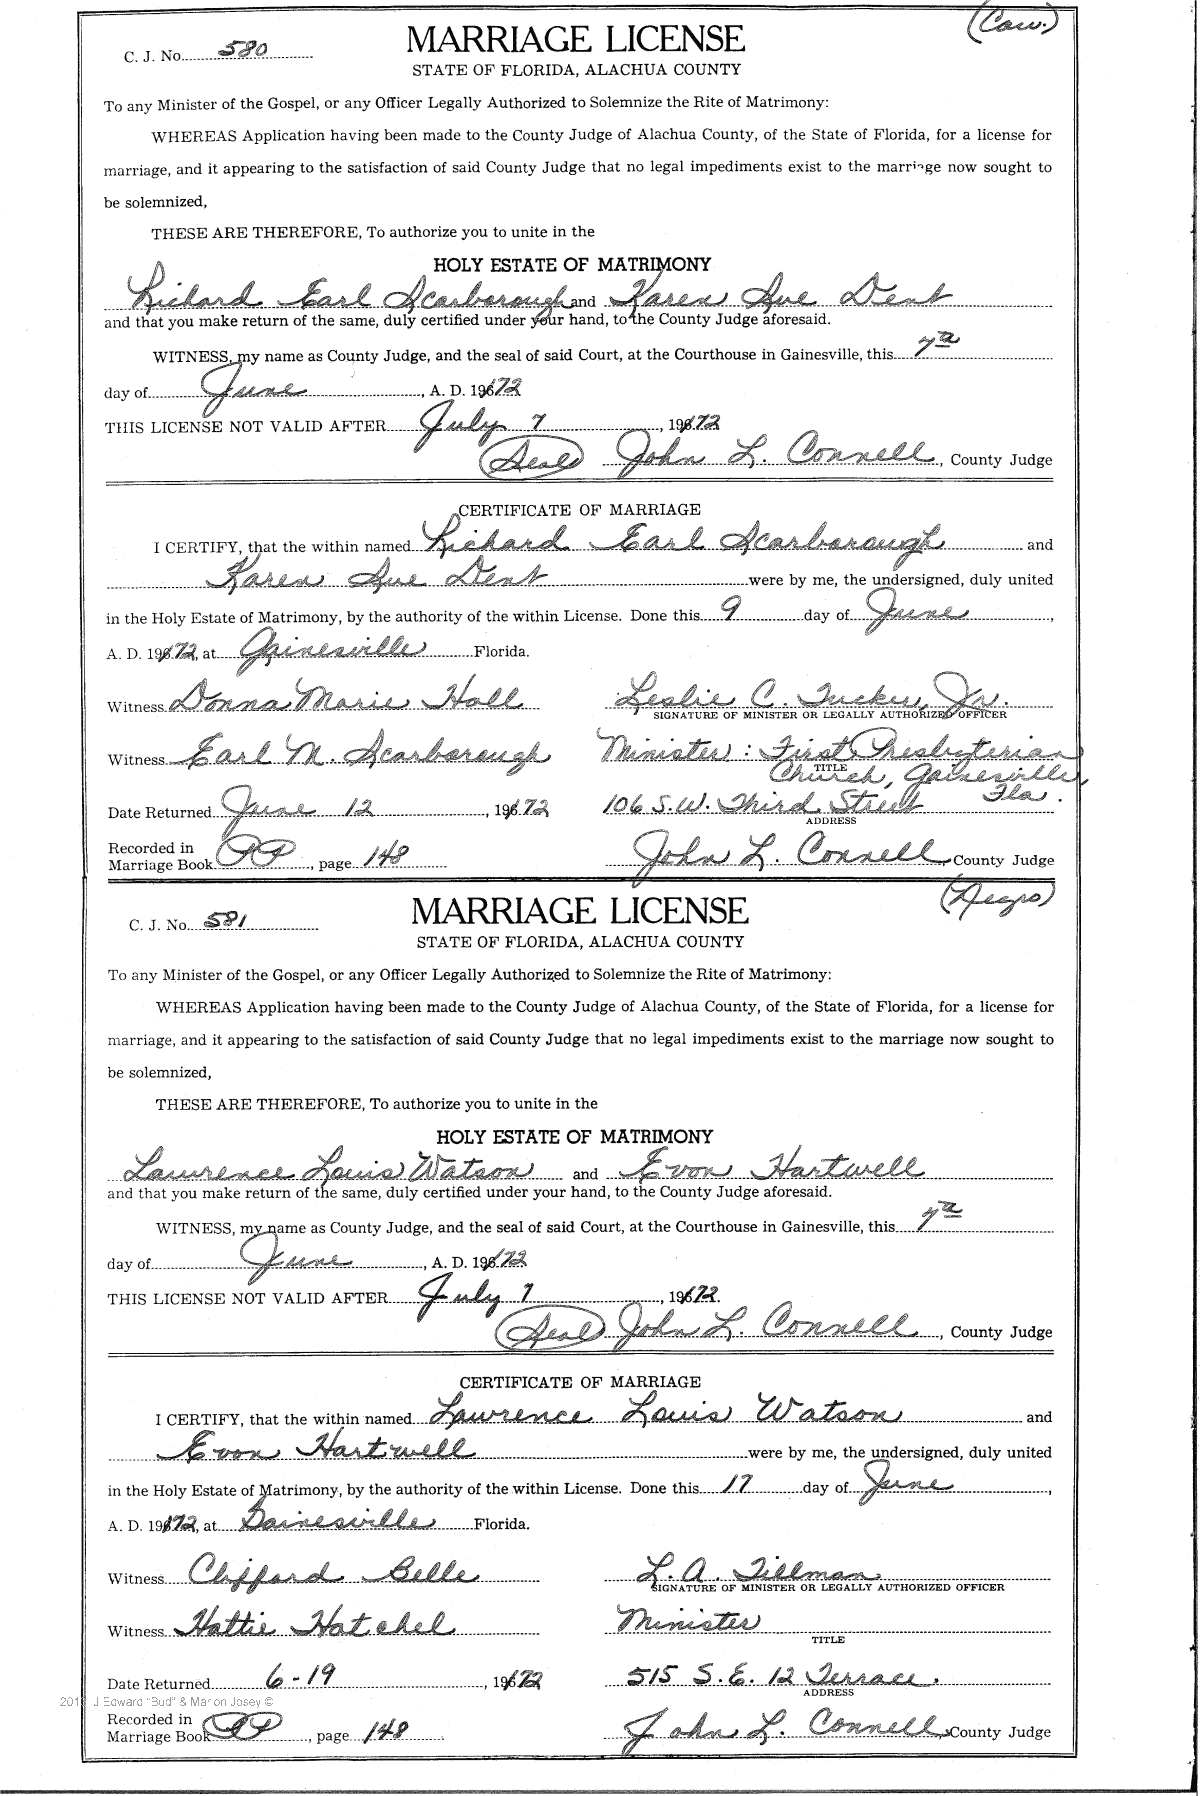 (Cau.)
C. J. No. 580
MARRIAGE LICENSE
STATE OF FLORIDA, ALACHUA COUNTY
To any Minister of the Gospel, or any Officer Legally Authorized to Solemnize the Rite of Matrimony:
WHEREAS Application having been made to the County Judge of Alachua County, of the State of Florida, for a license for
marriage, and it appearing to the satisfaction of said County Judge that no legal impediments exist to the marriage now sought to
be solemnized,
THESE ARE THEREFORE, To authorize you to unite in the
HOLY ESTATE OF MATRIMONY
Richard Earl Scarborough and Karen Sue Dent
and that you make return of the same, duly certified under your hand, to the County Judge aforesaid.
WITNESS, my name as County Judge, and the seal of said Court, at the Courthouse in Gainesville, this 7th
day of June, A. D. 1972
THIS LICENSE NOT VALID AFTER July 7, 1972
(Seal) John L. Connell, County Judge
CERTIFICATE OF MARRIAGE
I CERTIFY, that the within named Richard Earl Scarborough and
Karen Sue Dent were by me, the undersigned, duly united
in the Holy Estate of Matrimony, by the authority of the within License. Done this 9 day of June,
A. D. 1972, at Gainesville Florida.
Witness Donna Marie Hall Leslie C. Tucker, Jr.
SIGNATURE OF MINISTER OR LEGALLY AUTHORIZED OFFICER
Witness Earl M. Scarborough Minister: First Presbyterian
TITLE Church, Gainesville, Fla.
Date Returned June 12, 1972 106 S.W. Third Street
ADDRESS
Recorded in
Marriage Book PP, page 148 John L. Connell County Judge
(Negro)
C. J. No. 581
MARRIAGE LICENSE
STATE OF FLORIDA, ALACHUA COUNTY
To any Minister of the Gospel, or any Officer Legally Authorized to Solemnize the Rite of Matrimony:
WHEREAS Application having been made to the County Judge of Alachua County, of the State of Florida, for a license for
marriage, and it appearing to the satisfaction of said County Judge that no legal impediments exist to the marriage now sought to
be solemnized,
THESE ARE THEREFORE, To authorize you to unite in the
HOLY ESTATE OF MATRIMONY
Lawrence Louis Watson and Evon Hartwell
and that you make return of the same, duly certified under your hand, to the County Judge aforesaid.
WITNESS, my name as County Judge, and the seal of said Court, at the Courthouse in Gainesville, this 7th
day of June, A. D. 1972
THIS LICENSE NOT VALID AFTER July 7, 1972.
(Seal) John L. Connell, County Judge
CERTIFICATE OF MARRIAGE
I CERTIFY, that the within named Lawrence Louis Watson and
Evon Hartwell were by me, the undersigned, duly united
in the Holy Estate of Matrimony, by the authority of the within License. Done this 17 day of June,
A. D. 1972, at Gainesville Florida.
Witness Clifford Belle L. A. Tillman
SIGNATURE OF MINISTER OR LEGALLY AUTHORIZED OFFICER
Witness Hattie Hatchel Minister
TITLE
Date Returned 6-19, 1972 515 S.E. 12 Terrace.
ADDRESS
J Edward "Bud" & Marion Josey ©
Recorded in
Marriage Book PP, page 148 John L. Connell, County Judge